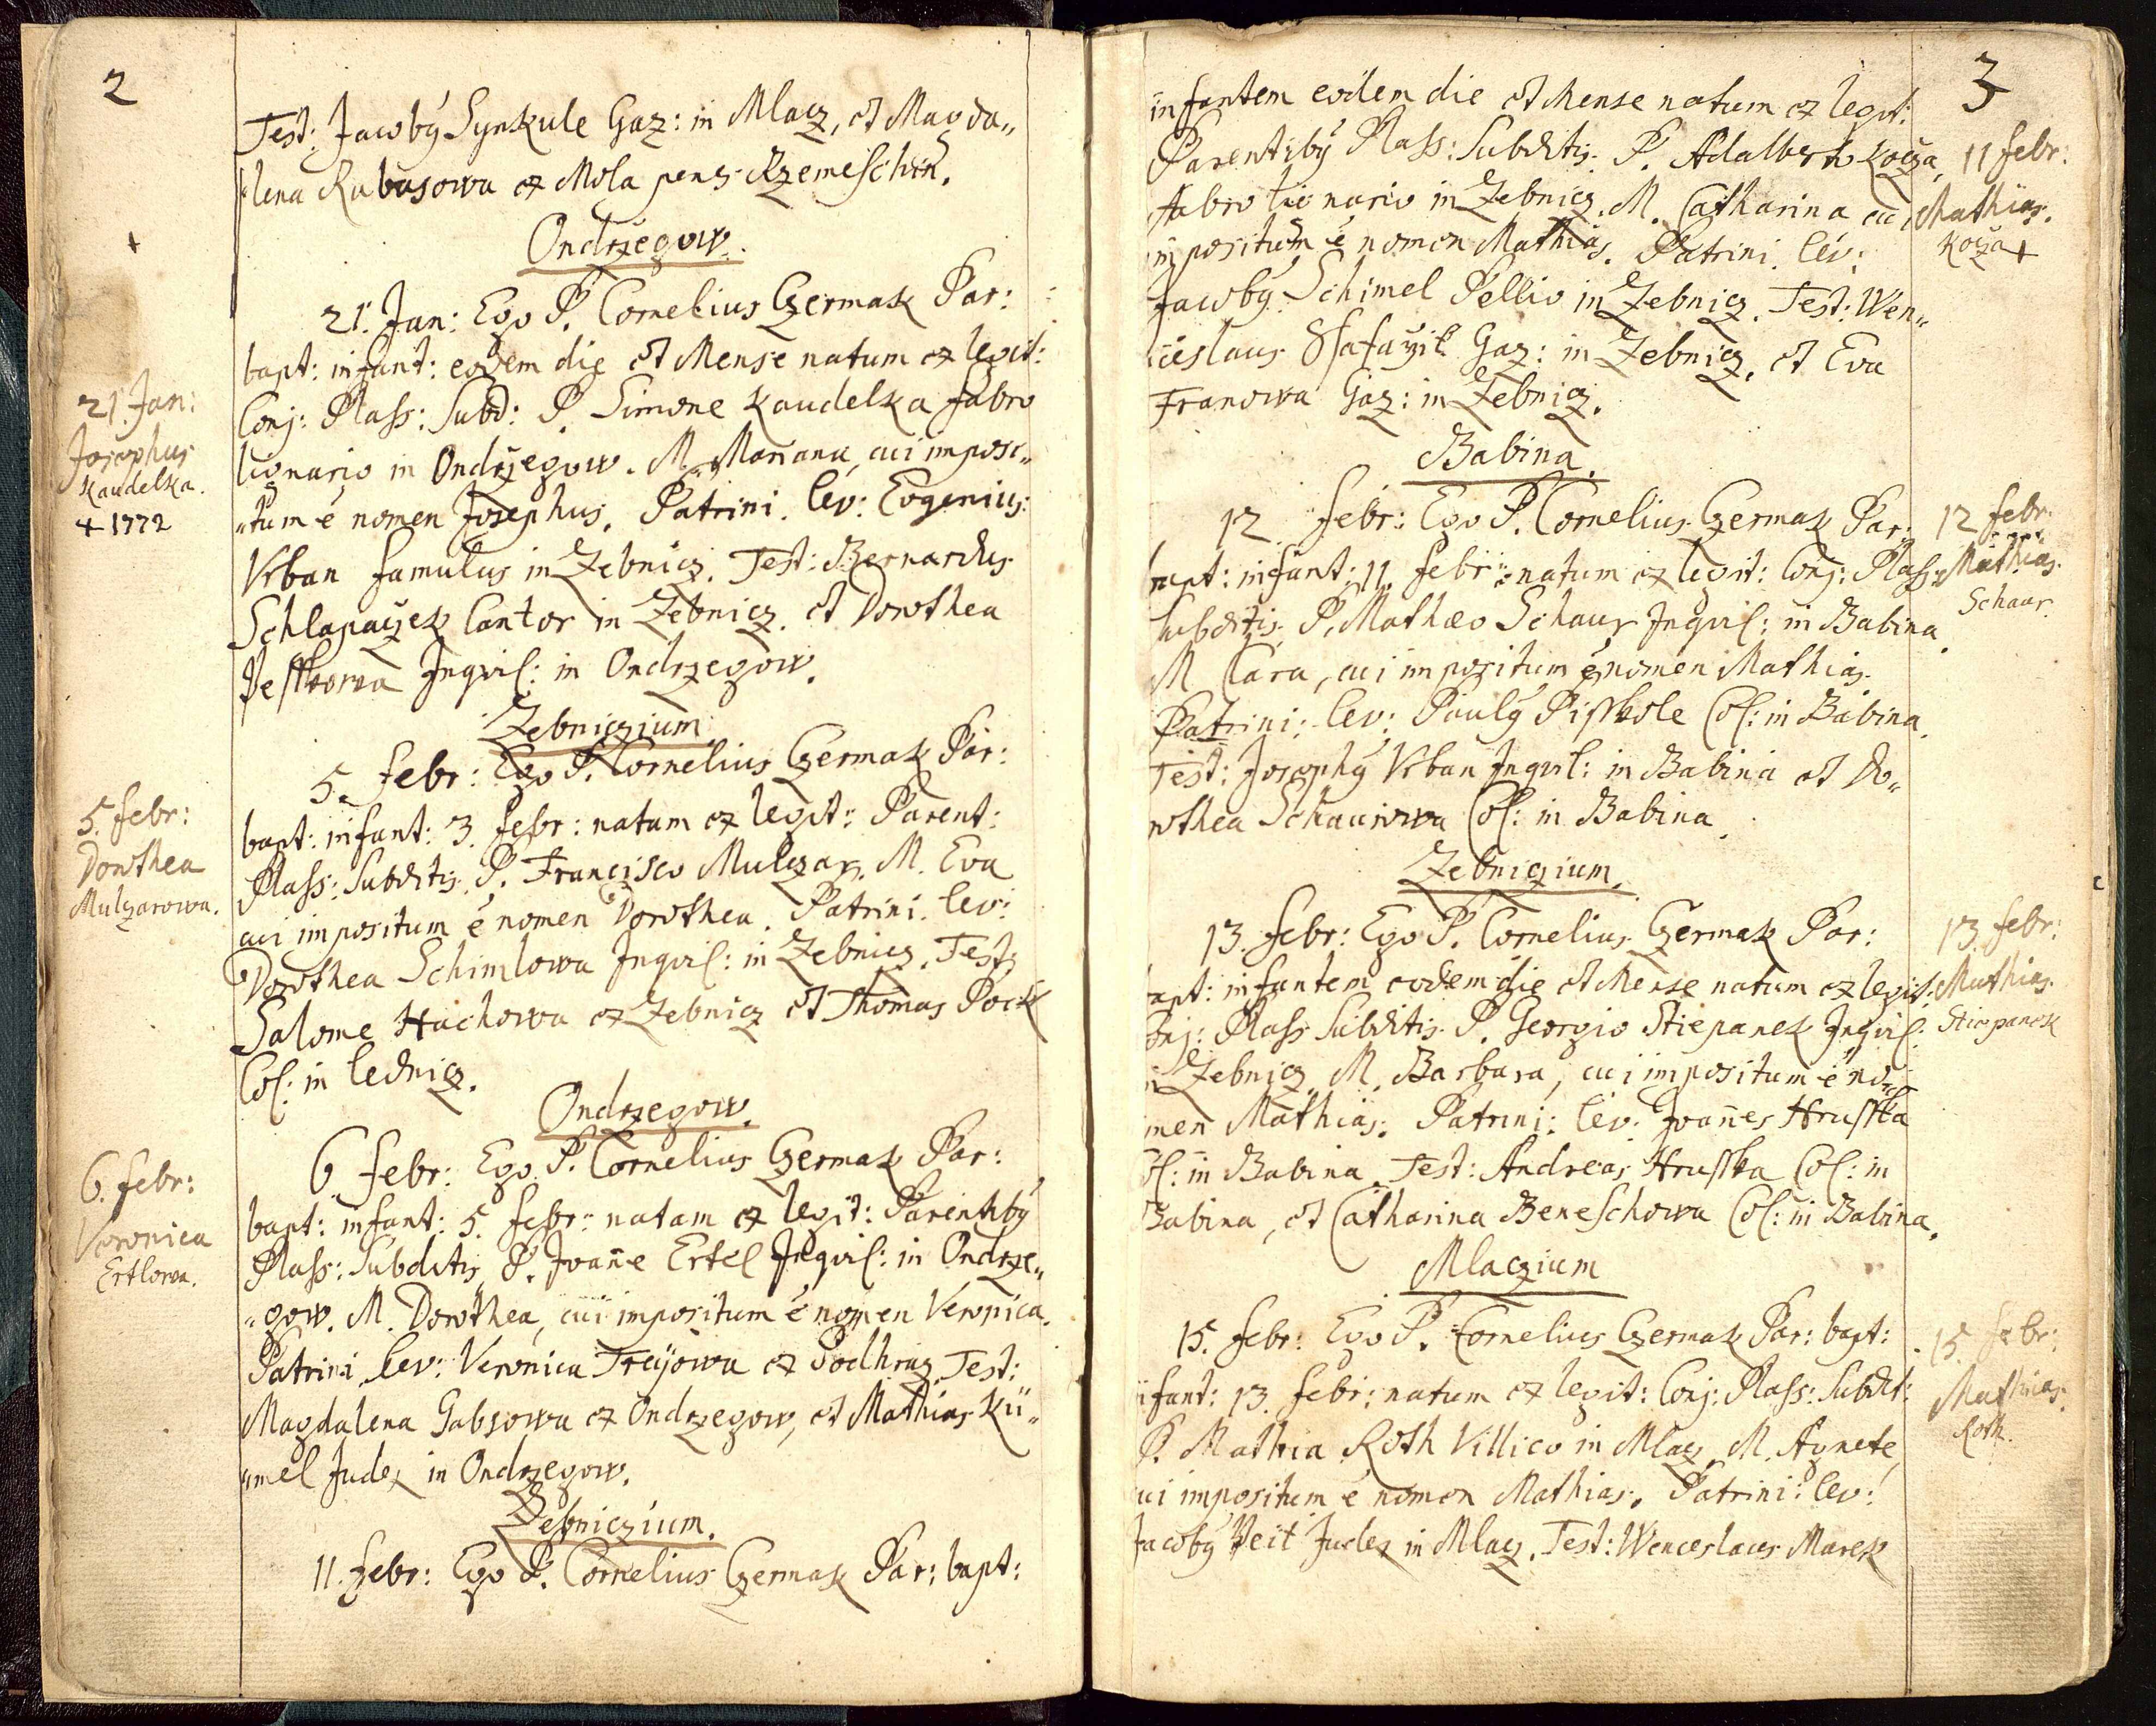 2
Test: Jacobý Synkule Gaz: in Mlacz, et Magda„
lena Rubasowa ex Mola penes Rzemeschin.
Ondrzegow.
21. Jan: Ego P. Cornelius Czermak Par:
bapt: infant: eodem die et Mense natum ex legit:
Conj: Plass: Subd: P. Simone Kaudelka fabro
lignario in Ondrzegow. M. Mariana, cui imposi„
„tum ē nomen Josephus. Patrini. lev: Eugenius
Vrban famulus in Zebnicz. Test: Bernardus
Schlapaczek Cantor in Zebnicz. et Dorothea
Pesskowa Inquil: in Ondrzegow.
21. Jan:
Josephus
Kaudelka.
+ 1772
Zebniczium
5. Febr: Ego P. Cornelius Czermak Par:
bapt: infant: 3. febr: natam ex legit: Parent:
Plass: Subditis. P. Francisco Mulczar. M. Eva
cui impositum ē nomen Dorothea. Patrini. lev:
Dorothea Schimlowa Inquil: in Zebnicz. Test:
Salome Hachowa ex Zebnicz et Thomas Pock
Col: in Lednicz.
5. febr:
Dorothea
Mulczarowa.
Ondrzegow.
6 Febr: Ego P. Cornelius Czermak Par:
bapt: infant: 5. febr: natam ex legit: Parentibý
Plass: Subditis P. Joanne Ertel Inquil: in Ondrze„
„gow. M. Dorothea, cui impositum ē nomen Veronica.
Patrini. lev: Veronica Treÿowa ex Podhraz. Test:
Magdalena Gabsowa ex Ondrzegow, et Mathias Kü„
„mel Judex in Ondrzegow.
6. febr:
Veronica
Ertlowa.
Zebniczium.
11. Febr: Ego P. Cornelius Czermak Par: bapt:
3
infantem eodem die et Mense natum ex legit:
Parentibý Plass: Subditis. P. Adalberto Kocza,
fabro lignario in Zebnicz. M. Catharina cui
impositum ē nomen Mathias. Patrini. lev:
Jacobý Schimel Pellio in Zebnicz. Test: Wen„
ceslaus Gaz: in Zebnicz, et Eva
Franowa Gaz: in Zebnicz.
11 febr:
Mathias.
Kocza +
Babina.
12 febr: Ego P. Cornelius Czermak Par:
bapt: infant: 11. febr: natum ex legit: Conj: Plass:
subditis. P. Mathæo Schaur Inquil: in Babina
M Clara, cui impositum ē nomen Mathias.
Patrini: lev: Paulý Pisskole Col: in Babina.
Test: Josephý Vrban Inquil: in Babina et Do„
rothea Schaurowa Col: in Babina.
12 febr:
Mathias
Schaur
Zebniczium.
13. febr: Ego P. Cornelius Czermak Par:
bapt: infantem eodem die et Mense natum ex legit:
Conj: Plass Subditis. P. Georgio Stiepanek Inquil:
in Zebnicz M. Barbara, cui impositum ē no„
men Mathias. Patrini: lev: Joannes Hrusska
Col: in Babina. Test: Andreas Hrusska Col: in
Babina, et Catharina Beneschowa Col: in Babina.
13. febr:
Mathias.
Stiepanek
Mlaczium
15. febr: Ego P. Cornelius Czermak Par: bapt:
infant: 13. febr: natum ex legit: Conj: Plass: Subdit:
P. Mathia Roth Villico in Mlacz. M. Agnete,
cui impositum ē nomen Mathias. Patrini: lev:
Jacobý Veit Judex in Mlacz. Test: Wenceslaus Marek
15. febr:
Mathias.
Roth.